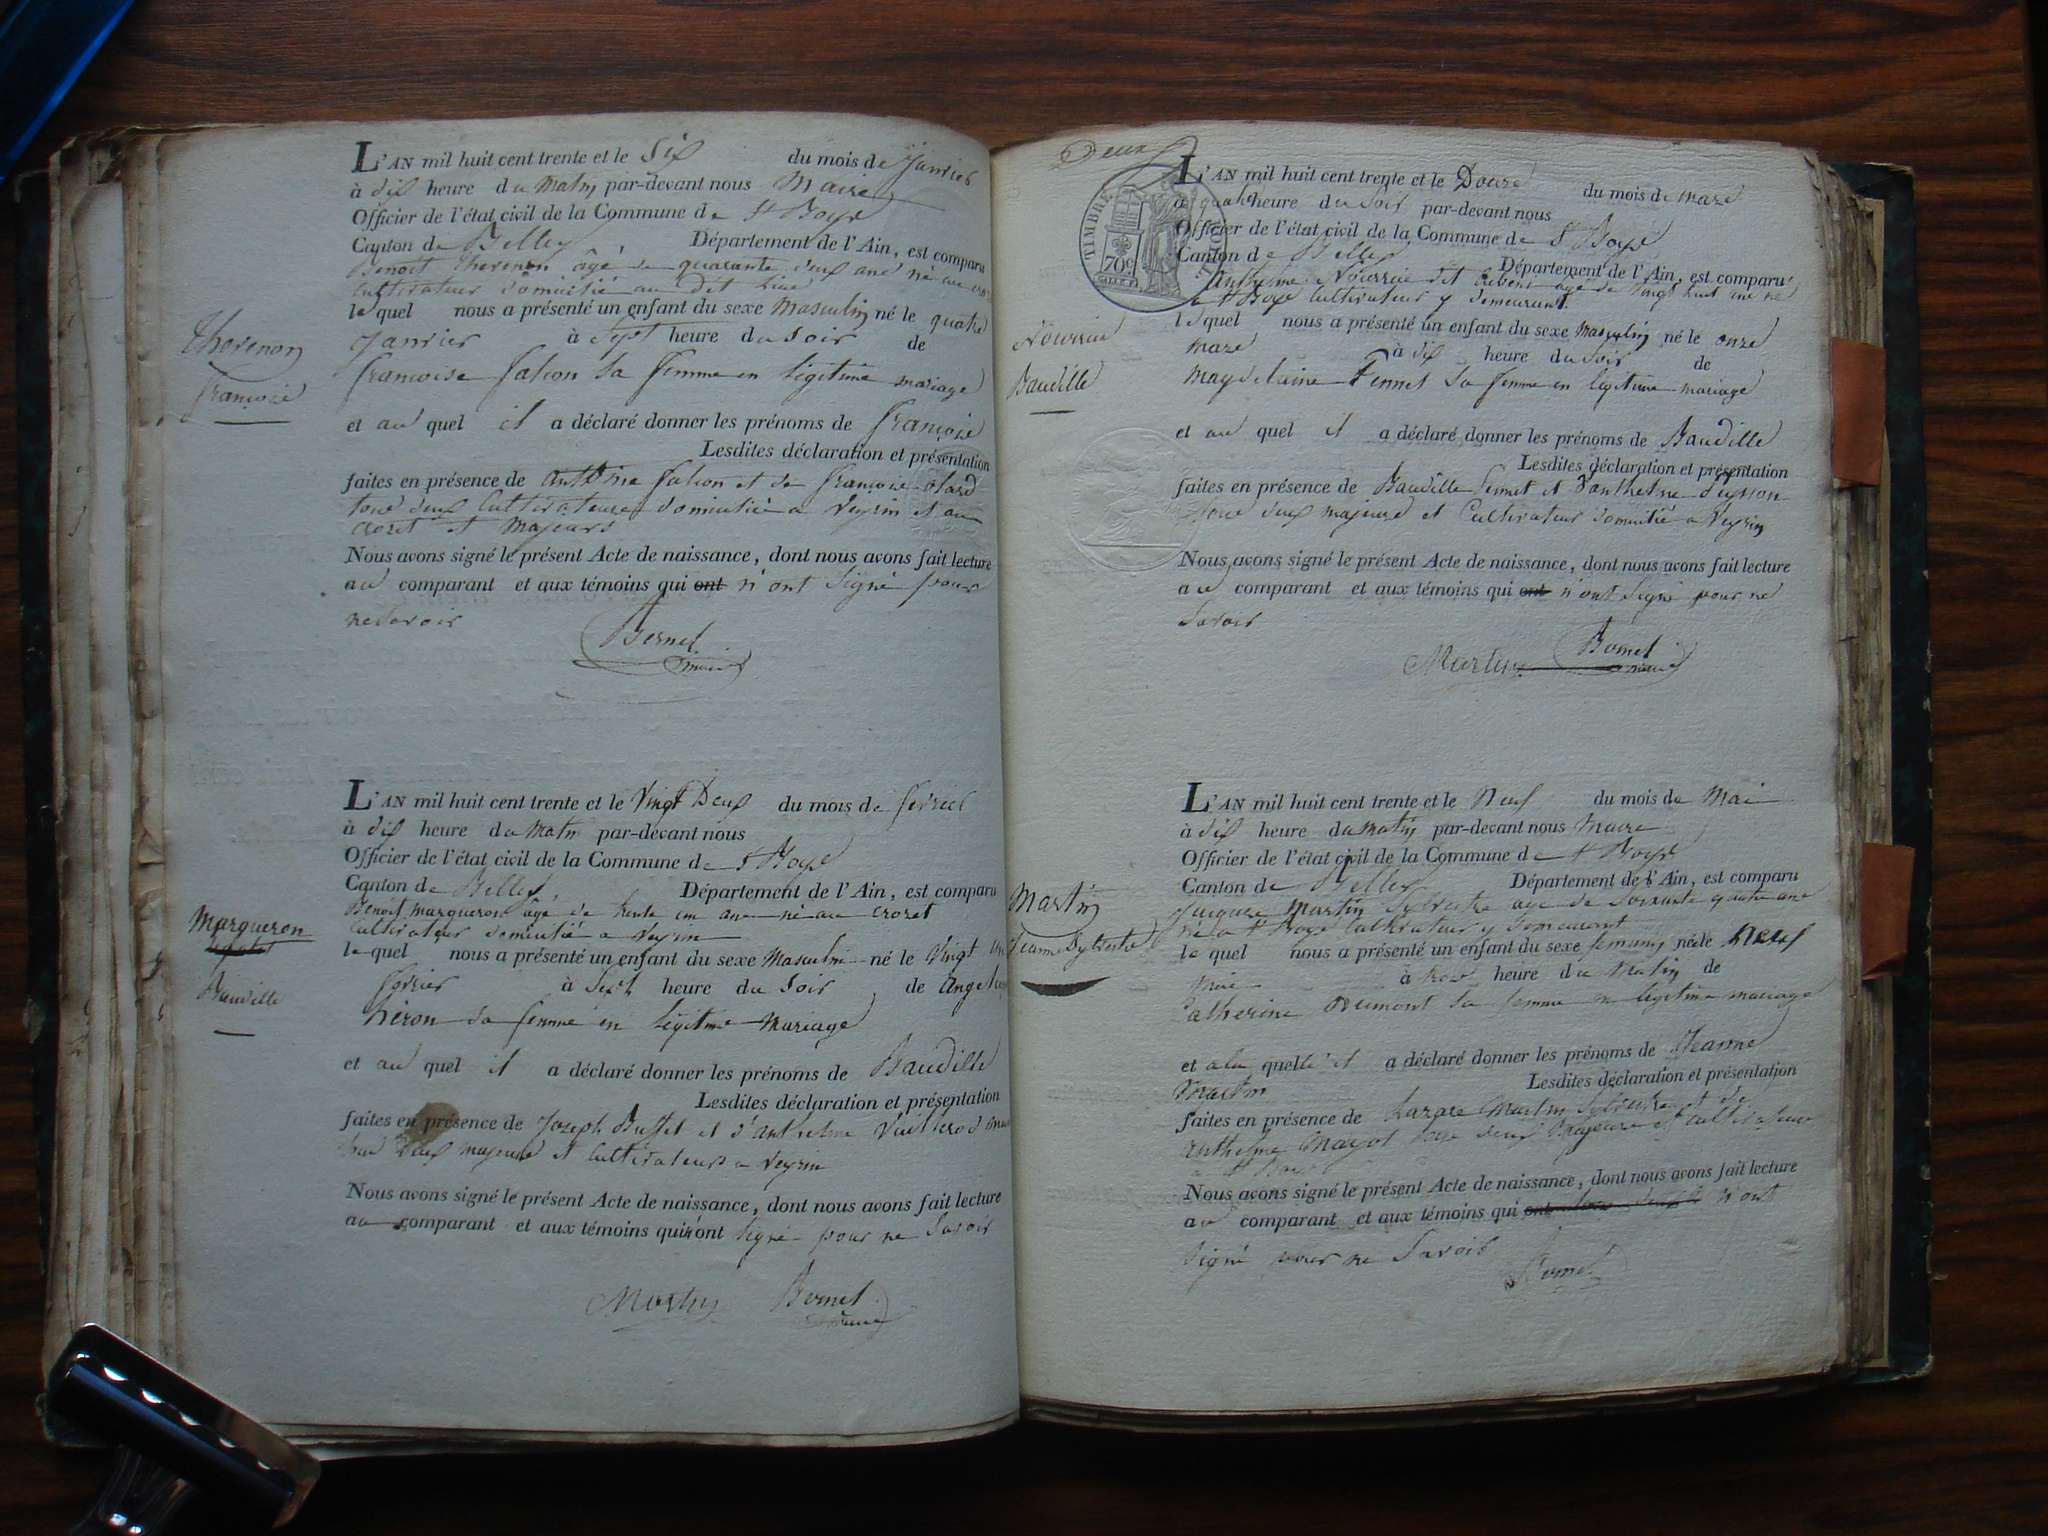 L'AN mil huit cent trente et le Six du mois de Janvier
à dix heure du Matin par-devant nous Maire
Officier de l'état civil de la Commune de St Boys
Canton de Belley Département de l'Ain, est comparu
Benoit Thevenon âgé de quarante deux ans né au croz
cultivateur domicilié au dit lieu
le quel nous a présenté un enfant du sexe Masculin né le quatre
Janvier à Sept heure du Soir de
françoise falcon sa femme en légitime mariage
et au quel il a déclaré donner les prénoms de françois
Lesdites déclaration et présentation
faites en présence de falcon et de françois
tous deux cultivateurs domicilié a Veyrin et au
crozet et Majeurs
Nous avons signé le présent Acte de naissance, dont nous avons fait lecture
au comparant et aux témoins qui ont n'ont Signé pour
ne Savoir
Bornet
maire
Thevenon
françois
L'AN mil huit cent trente et le Vingt Deux du mois de fevrier
à dix heure du Matin par-devant nous
Officier de l'état civil de la Commune de St Boys
Canton de Belley Département de l'Ain, est comparu
Benoit Marqueron âgé de trente un ans né au crozet
cultivateur domicilié a Veyrin
le quel nous a présenté un enfant du sexe Masculin né le Vingt un
fevrier à Sept heure du Soir de
héron sa femme en légitime Mariage
et au quel il a déclaré donner les prénoms de Baudille
Lesdites déclaration et présentation
faites en présence de Joseph Buffet et d'anthelme
tous Deux majeurs et cultivateurs a Veyrin
Nous avons signé le présent Acte de naissance, dont nous avons fait lecture
au comparant et aux témoins qui n'ont Signé pour ne Savoir
Martin Bornet
maire
Marqueron
Baudille
Deux
TIMBRE ROYAL
70c
L'AN mil huit cent trente et le Douze du mois de Mars
à quatre heure du Soir par-devant nous
Officier de l'état civil de la Commune de St Boys
Canton de Belley Département de l'Ain, est comparu
Anthelme Nourrin dit âgé de Vingt huit ans né
a St Boys Cultivateur y demeurant
le quel nous a présenté un enfant du sexe Masculin né le onze
Mars à dix heure du Soir de
Magdelaine Fennet sa femme en légitime mariage
et au quel il a déclaré donner les prénoms de Baudille
Lesdites déclaration et présentation
faites en présence de Baudille fennet et d'anthelme
tous deux majeurs et Cultivateur domicilié a Veyrin
Nous avons signé le présent Acte de naissance, dont nous avons fait lecture
au comparant et aux témoins qui ont n'ont Signé pour ne
Savoir
Martin Bornet
maire
Nourrin
Baudille
L'AN mil huit cent trente et le Neuf du mois de Mai
à dix heure du Matin par-devant nous Maire
Officier de l'état civil de la Commune de St Boys
Canton de Belley Département de l'Ain, est comparu
Jacques Martin Sylvestre âgé de Soixante quatre ans
né a St Boys Cultivateur y demeurant
le quel nous a présenté un enfant du sexe feminin née le Neuf
Mai à heure du Matin de
Catherine Dumont sa femme en légitime mariage
et a la quelle il a déclaré donner les prénoms de Jeanne
Martin
Lesdites déclaration et présentation
faites en présence de Lazare Martin Sylvestre et de
Anthelme tous deux Majeurs et Cultivateurs
a St Boys
Nous avons signé le présent Acte de naissance, dont nous avons fait lecture
au comparant et aux témoins qui n'ont
Signé pour ne Savoir
Bornet
Martin
Jeanne Sylvestre